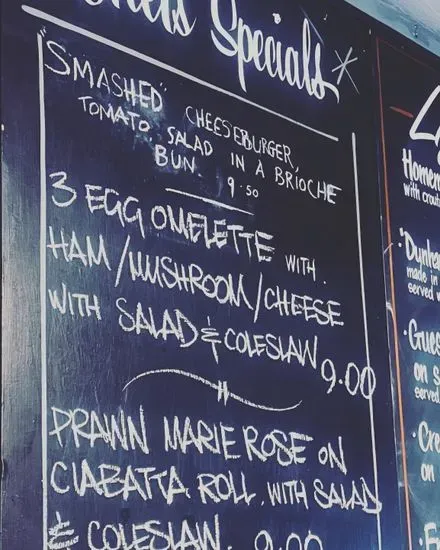 Specials
"SMASHED" CHEESEBURGER,
TOMATO, SALAD IN A BRIOCHE
BUN. 9.50
3 EGG OMELETTE WITH
HAM/MUSHROOM/CHEESE
WITH SALAD & COLESLAW 9.00
PRAWN MARIE ROSE ON
CIABATTA ROLL. WITH SALAD
& COLESLAW. 9.00
Homem
with crout
made in
served
Gues
on s
served
Cr
on